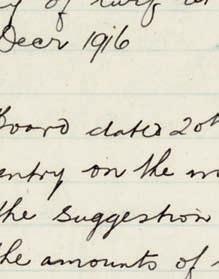 y of
Decr 1916
Board dated 20th
entry on the m
the suggestion
the amounts of